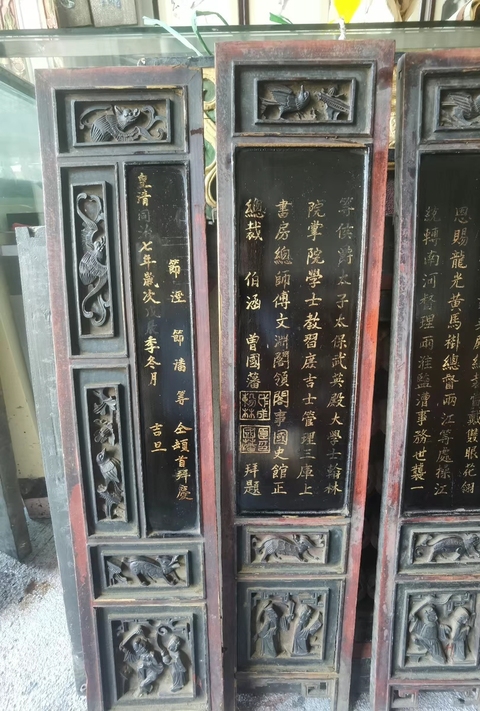 戴雙眼花翎
恩賜龍光黃馬褂總督兩江等處操江
統轉南河督理兩淮鹽漕事務世襲一
等侯爵太子太保武英殿大學士翰林
院掌院學士教習庶吉士管理三庫上
書房總師傅文淵閣領閣事國史館正
總裁 伯涵 曾國藩 拜題
節 節潘 等 仝頓首拜慶
皇清同治七年歲次戊辰季冬月 吉旦